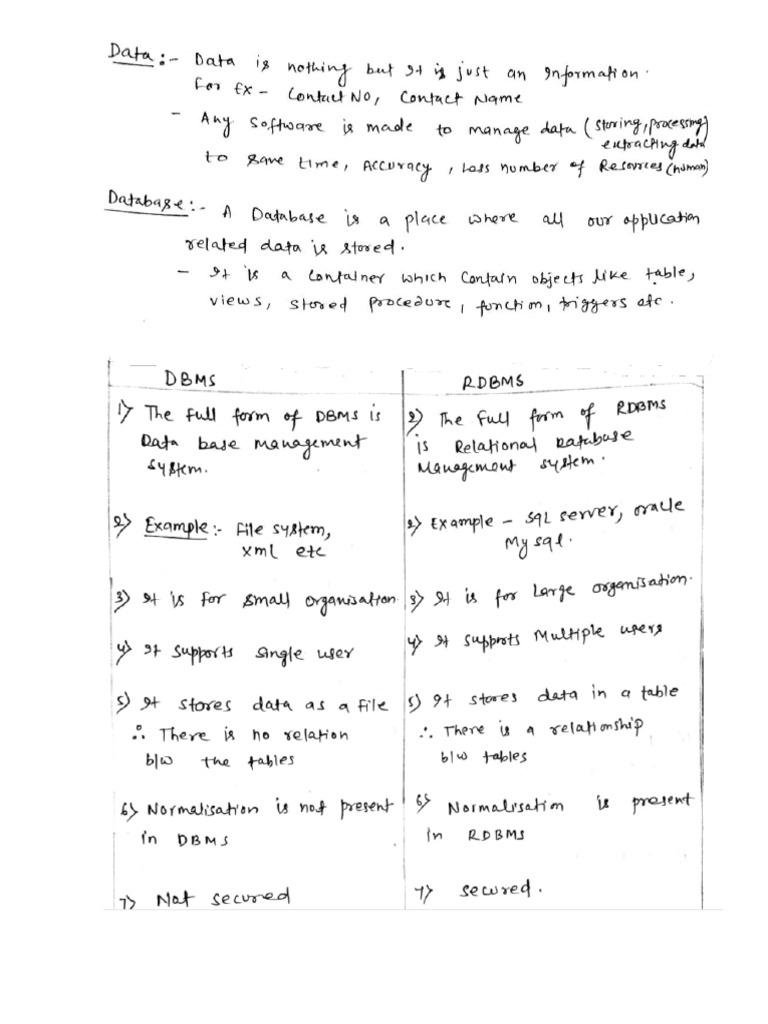 Data :- Data is nothing but It is just an Information.
For Ex - Contact No, Contact Name
- Any Software is made to manage data (storing, processing)
extracting data
to save time, Accuracy, Less number of Resources (human)
Database :- A Database is a place where all our application
related data is stored.
- It is a container which contain objects like table,
views, stored procedure, function, triggers etc.
DBMS
RDBMS
1) The full form of DBMS is
Data base Management
System.
2) The full form of RDBMS
is Relational Database
Management system.
2) Example :- File system,
xml etc
2) Example - SQL server, oracle
My sql.
3) It is for small organisation
3) It is for Large organisation.
4) It supports single user
4) It supports Multiple users
5) It stores data as a file
∴ There is no relation
b/w the tables
5) It stores data in a table
∴ There is a relationship
b/w tables
6) Normalisation is not present
in DBMS
6) Normalisation is present
in RDBMS
7) Not secured
7) secured.